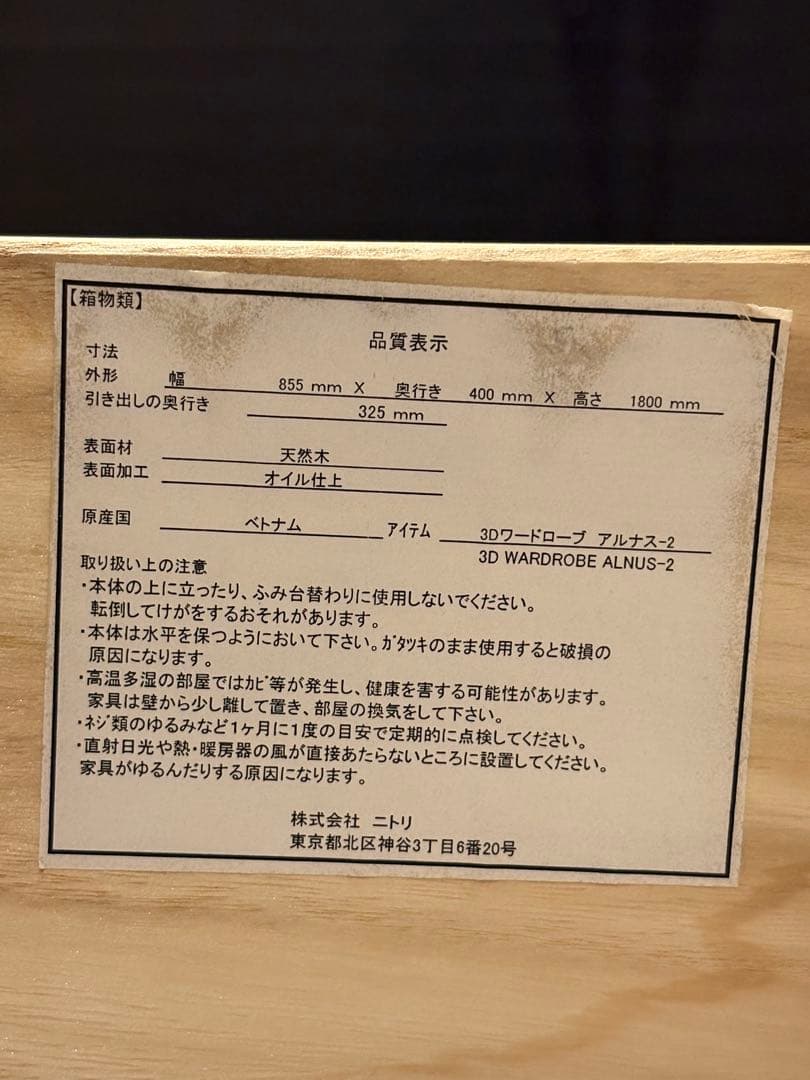 【箱物類】
品質表示
寸法
外形 幅 855 mm X 奥行き 400 mm X 高さ 1800 mm
引き出しの奥行き 325 mm
表面材 天然木
表面加工 オイル仕上
原産国 ベトナム アイテム 3Dワードローブ アルナス-2
3D WARDROBE ALNUS-2
取り扱い上の注意
・本体の上に立ったり、ふみ台替わりに使用しないでください。
転倒してけがをするおそれがあります。
・本体は水平を保つようにおいて下さい。ｶﾞﾀﾂｷのまま使用すると破損の
原因になります。
・高温多湿の部屋ではｶﾋﾞ等が発生し、健康を害する可能性があります。
家具は壁から少し離して置き、部屋の換気をして下さい。
・ネジ類のゆるみなど1ヶ月に1度の目安で定期的に点検してください。
・直射日光や熱・暖房器の風が直接あたらないところに設置してください。
家具がゆるんだりする原因になります。
株式会社 ニトリ
東京都北区神谷3丁目6番20号